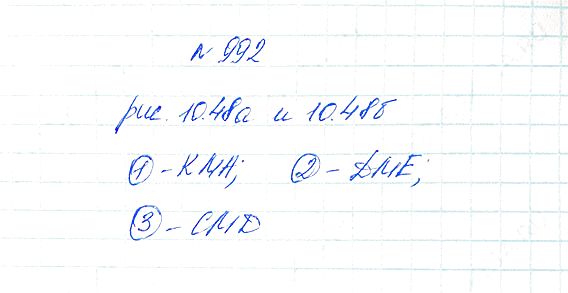 № 992
рис. 10.48а и 10.48б
① - КМА; ② - DME;
③ - CMD